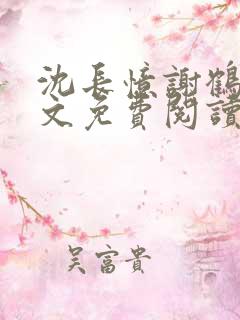 沈長憶謝鶴
文免費閱讀
吴富貴